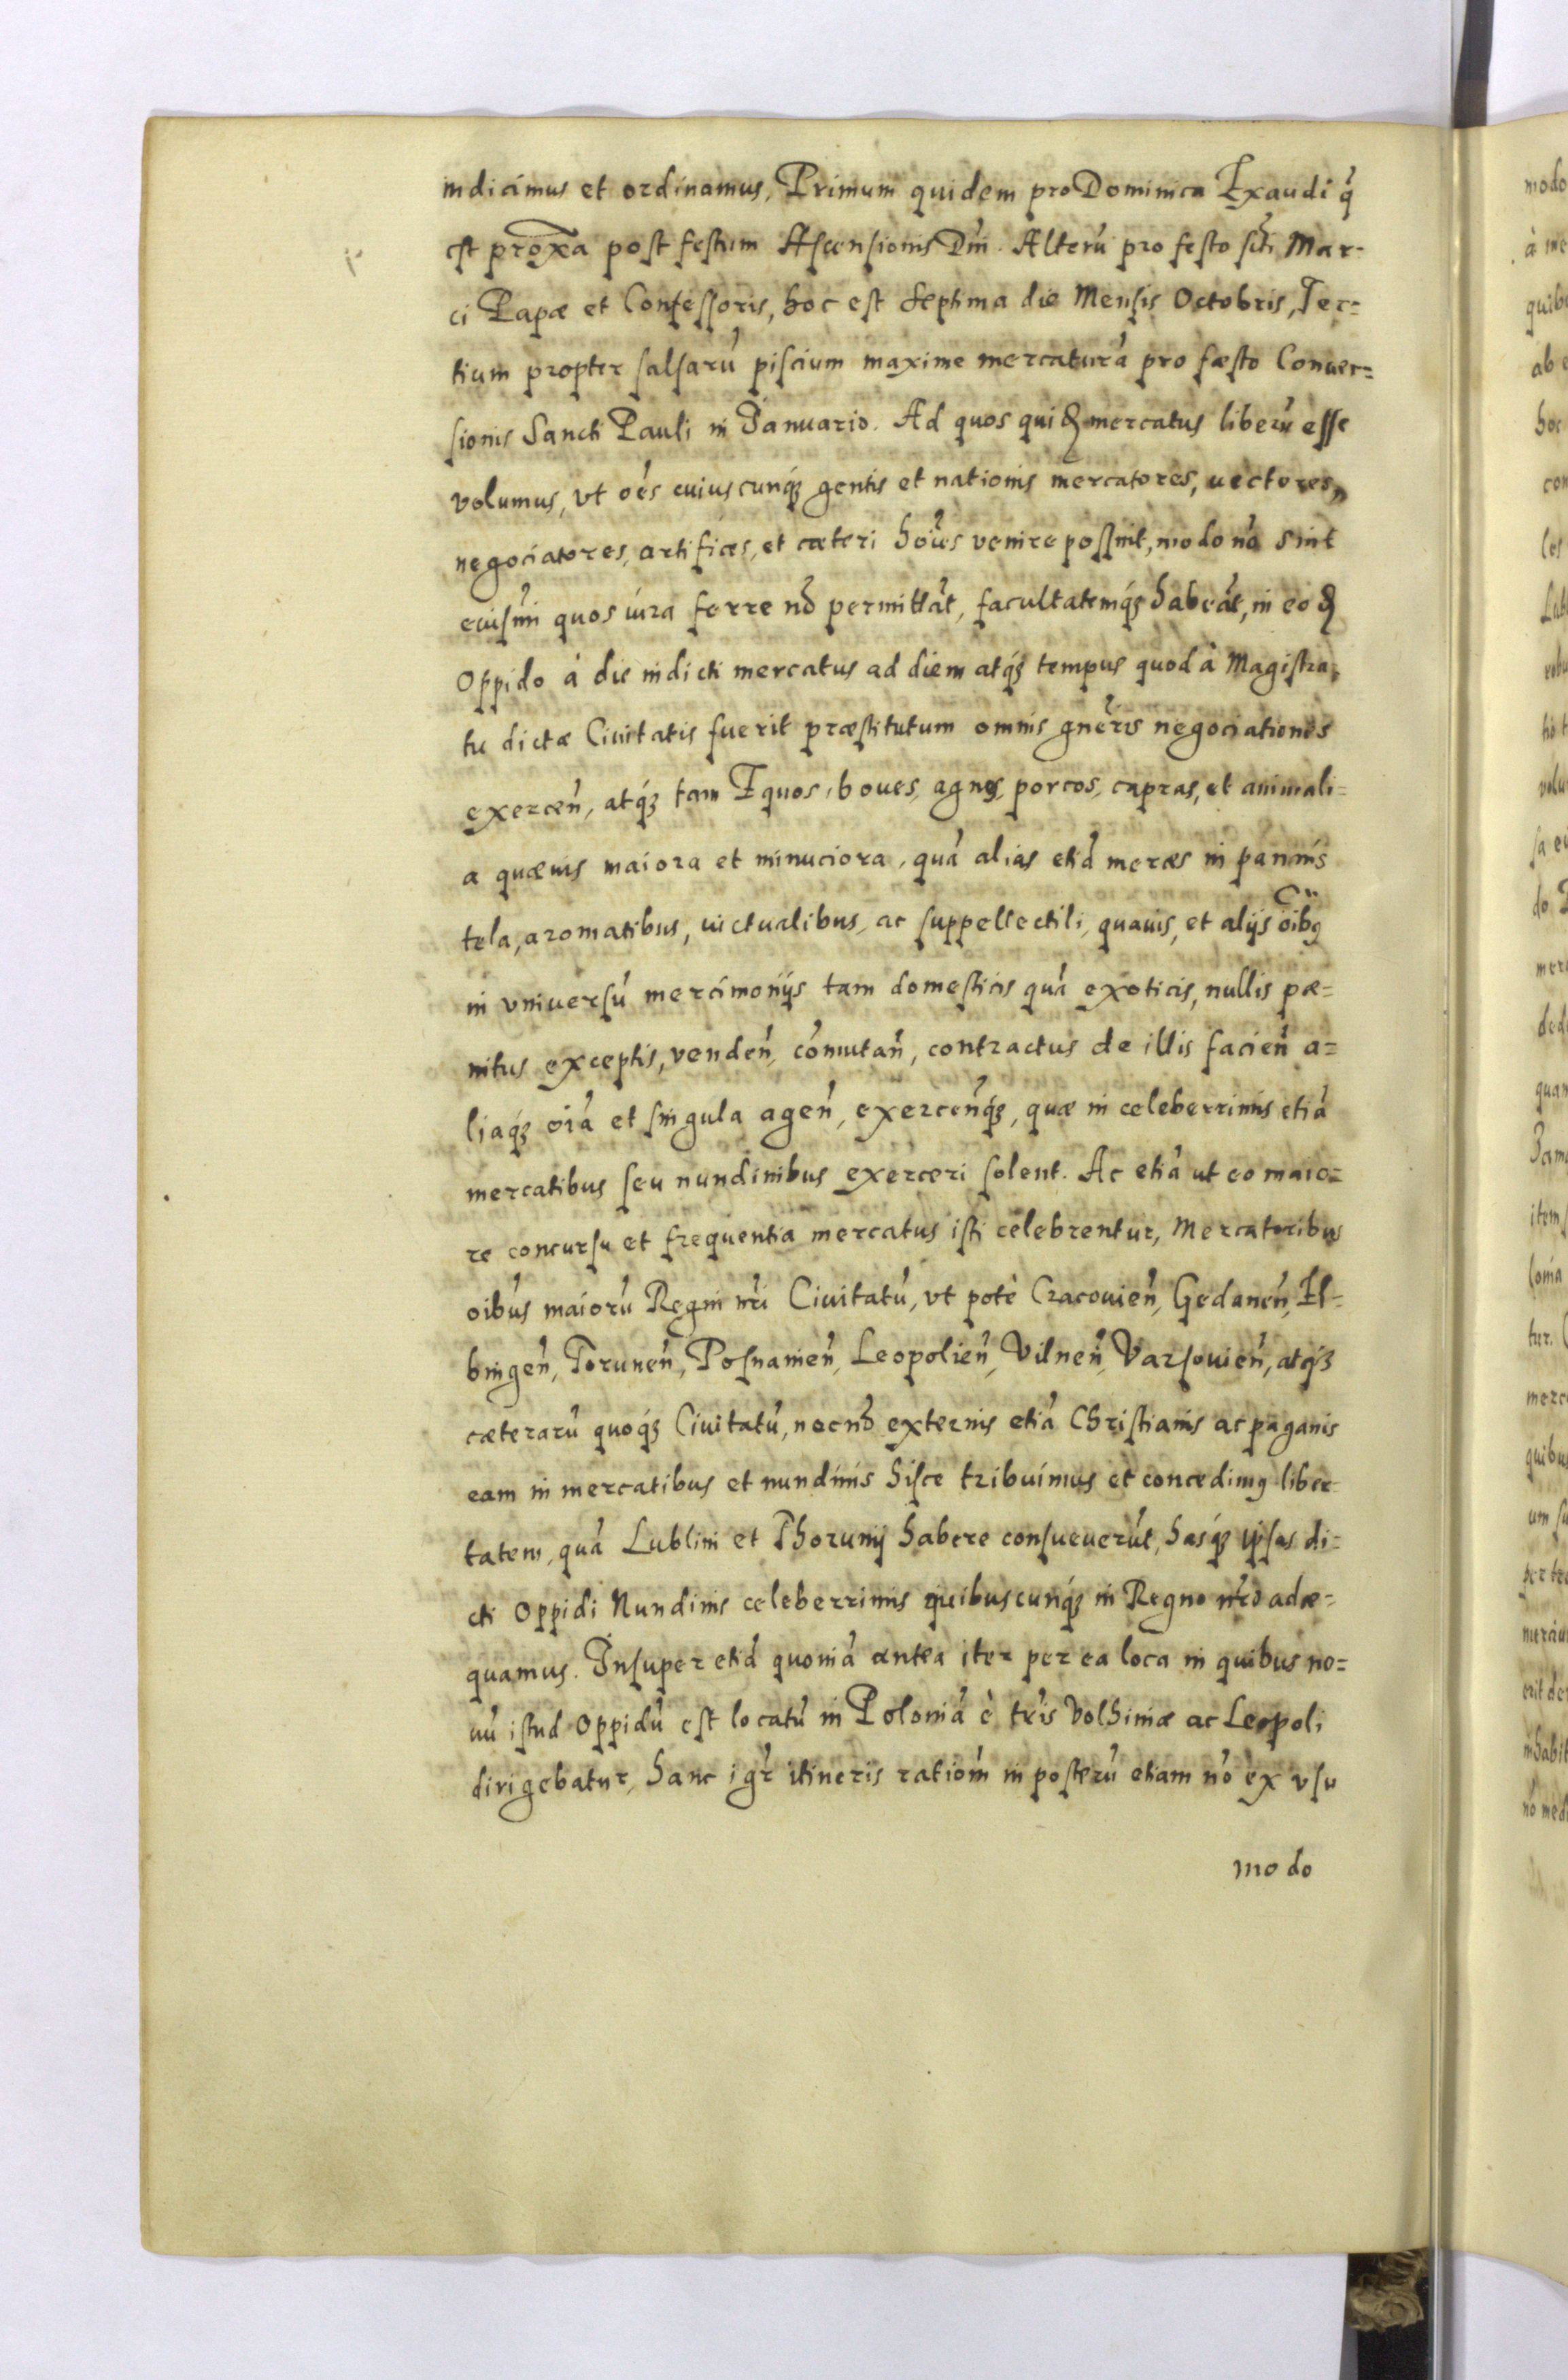 indicimus et ordinamus, Primum quidem pro Dominica Exaudi q̃
est proxa̅ post festum Ascensionis Dn̄i. Alterũ pro festo sc̃ti Mar-
ci Papæ et Confessoris, hoc est septima die Mensis Octobris, Ter=
tium propter salsarũ piscium maxime mercaturã pro fæsto Conuer=
sionis Sancti Pauli in Januario. Ad quos quiđ mercatus liberũ esse
volumus, vt oẽs cuiuscunq́ꝫ gentis et nationis mercatores, uectores,
negociatores, artifices, et cæteri hoĩes venire possint, modo nõ sint
euismi quos iura ferre nõ permittãt, facultatemq́ꝫ habeãt, in eođ
Oppido à die indicti mercatus ad diem atq́ꝫ tempus quod à Magistra,
tu dictæ Ciuitatis fuerit præstitutum omnis gñeris negociationes
exercen̄, atq́ꝫ tam Equos, boues, agnos, porcos, capras, et animali=
a quæuis maiora et minuciora, quã alias etiã merces in pannis
tela, aromatibus, uictualibus, ac suppellectili, quauis, et alijs oĩbꝰ
in vniuersũ mercimonijs tam domesticis quã exoticis, nullis pæ=
nitus exceptis, venden̄, cõmutan̄, contractus de illis facien̄ a=
liaq́ꝫ oĩa et singula agen̄, exercen̄q́ꝫ, quæ in celeberrimis etiã
mercatibus seu nundinibus exerceri solent. Ac etiã ut eo maio=
re concursu et frequentia mercatus isti celebrentur, Mercatoribus
oĩbus maiorũ Regni nr̃i Ciuitatũ, vt potè Cracouien̄, Gedanen̄, El=
bingen̄, Torunen̄, Posnanien̄, Leopolien̄, Vilnen̄, Varsouien̄, atq́ꝫ
cæterarũ quoq́ꝫ Ciuitatũ, necnõ externis etiã Christianis ac paganis
eam in mercatibus et nundinis hisce tribuimus et concedimꝰ liber
tatem, quã Lublini et Thorunij habere consueuerũt, hasq́ꝫ ipsas di=
cti Oppidi Nundinis celeberrimis quibuscunq́ꝫ in Regno nr̃o adæ=
quamus. Insuper etiã quoniã antea iter per ea loca in quibus no=
uũ istud Oppidũ est locatũ in Poloniã è tr̃is Volhiniæ ac Leopoli
dirigebatur, hanc igr̃ itineris ratiõm in posterũ etiam nõ ex vsu
modo